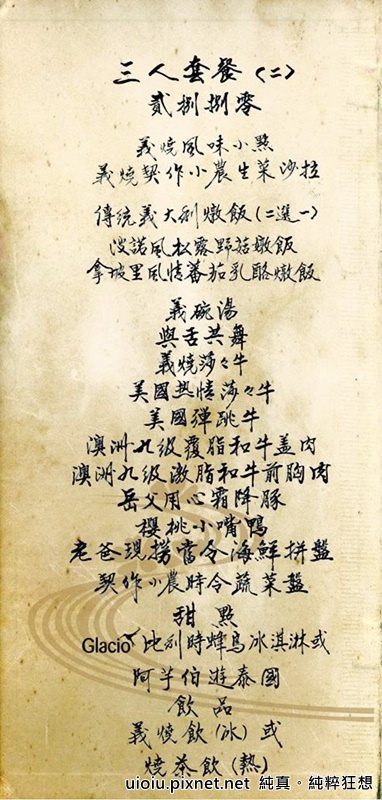 三人套餐(二)
貳捌捌零
義燒風味小點
義燒契作小農生菜沙拉
傳統義大利燉飯(二選一)
波諾風松露野菇燉飯
拿坡里風情蕃茄乳酪燉飯
義碗湯
與舌共舞
義燒莎々牛
美國熱情莎々牛
美國彈跳牛
澳洲九級覆脂和牛蓋肉
澳洲九級激脂和牛前胸肉
岳父用心霜降豚
櫻桃小嘴鴨
老爸現撈當令海鮮拼盤
契作小農時令蔬菜盤
甜點
Glacio 比利時蜂鳥冰淇淋或
阿芋伯遊泰國
飲品
義燒飲(冰)或
燒茶飲(熱)
uioiu.pixnet.net 純真。純粹狂想